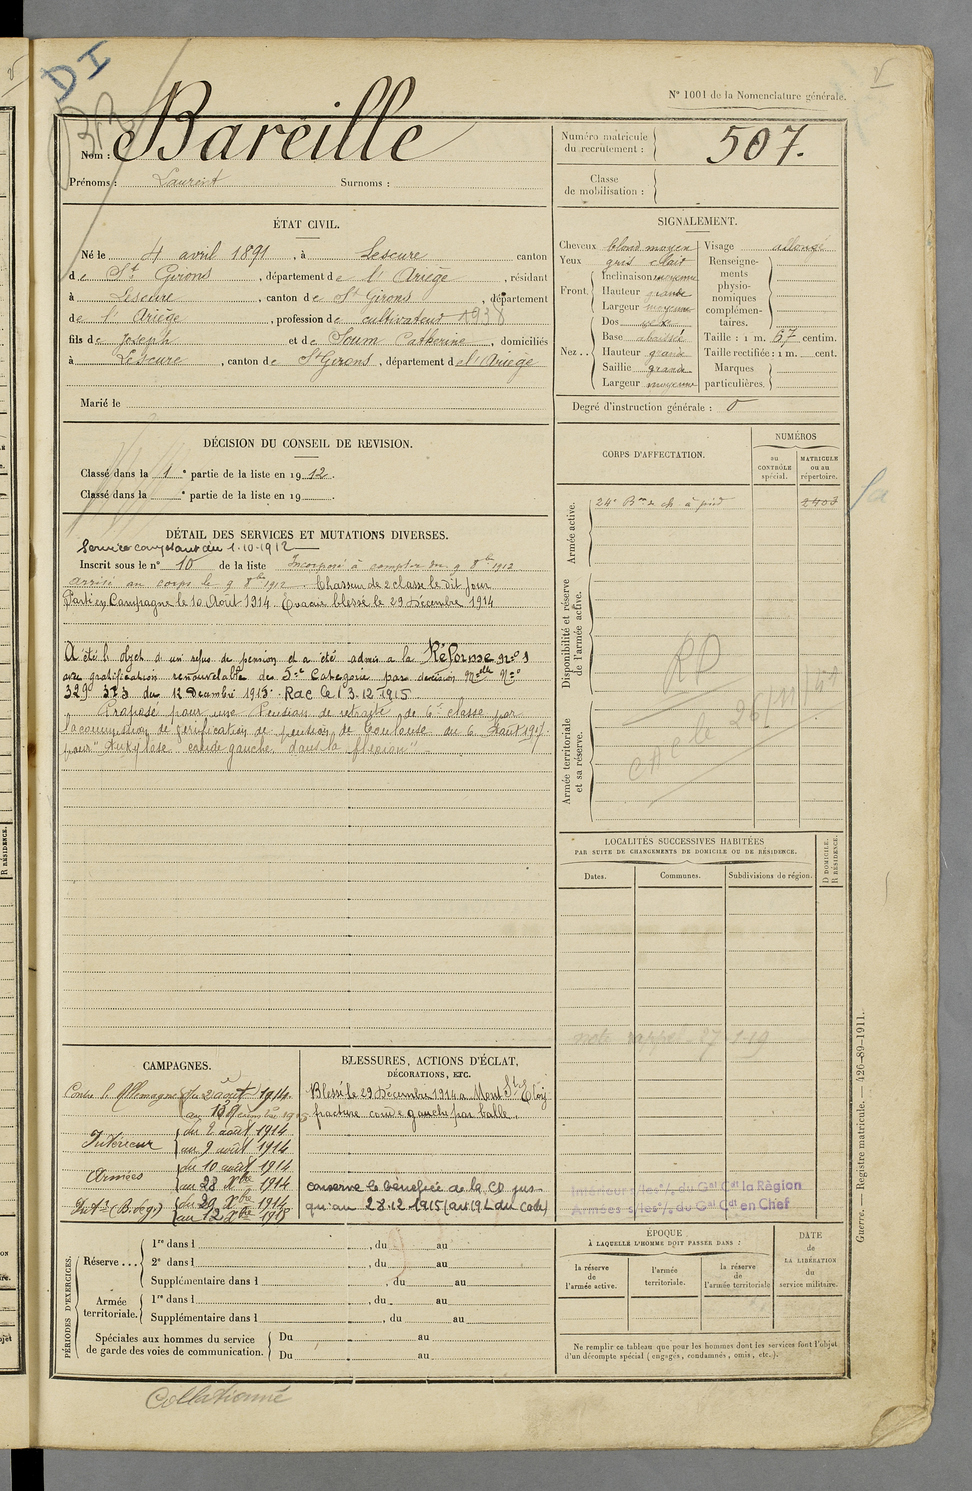 DI
N° 1001 de la Nomenclature générale.
Nom : Bareille
Prénoms : Laurent Surnoms :
Numéro matricule du recrutement : 507.
Classe de mobilisation :
ÉTAT CIVIL.
Né le 4 avril 1891, à Lescure canton
de St Girons, département de l'Ariège, résidant
à Lescure, canton de St Girons, département
de l'Ariège, profession de cultivateur 1938
fils de Joseph et de Soum Catherine, domiciliés
à Lescure, canton de St Girons, département de l'Ariège
Marié le
SIGNALEMENT.
Cheveux blond moyen
Yeux gris clair
Front. Inclinaison moyenne
Hauteur grande
Largeur moyenne
Nez.. Dos
Base abaissée
Hauteur grande
Saillie grande
Largeur moyenne
Visage allongé
Renseignements physionomiques complémentaires.
Taille : 1 m. 67 centim.
Taille rectifiée : 1 m. cent.
Marques particulières.
Degré d'instruction générale : 0
DÉCISION DU CONSEIL DE REVISION.
Classé dans la 1e partie de la liste en 1912.
Classé dans la e partie de la liste en 19
DÉTAIL DES SERVICES ET MUTATIONS DIVERSES.
Service comptant du 1-10-1912
Inscrit sous le n° 10 de la liste Incorporé à compter du 9 8bre 1912
arrivé au corps le 9 8bre 1912. Chasseur de 2 classe le dit jour
Parti en Campagne le 10 Août 1914 Evacué blessé le 29 Décembre 1914
A été l'objet d'un refus de pension et a été admis à la Réforme n° 1
avec gratification renouvelable de 5me Catégorie par décision Melle N°
329 373 du 12 Décembre 1915. Rac le 13.12.1915
Proposé pour une Pension de retraite de 6e classe par
la commission de vérification de pension de Toulouse du 6 Août 1917.
pour "Ankylose coude gauche dans la flexion".
CORPS D'AFFECTATION.
NUMÉROS
au CONTRÔLE spécial.
MATRICULE ou au répertoire.
Armée active.
24e Bon de ch. à pied 2403
Disponibilité et réserve de l'armée active.
RD
Armée territoriale et sa réserve.
LOCALITÉS SUCCESSIVES HABITÉES
PAR SUITE DE CHANGEMENTS DE DOMICILE OU DE RÉSIDENCE.
Dates. Communes. Subdivisions de région. D DOMICILE. R RÉSIDENCE.
Intérieur s/les o/ du Gal Cdt la Région
Armées s/les o/ du Gal Cdt en Chef
CAMPAGNES.
Contre l'Allemagne du 2 août 1914
Intérieur du 2 août 1914
au 9 août 1914
Armées du 10 août 1914
au 28 Xbre 1914
du 29 Xbre 1914
au 12 Xbre 1915
BLESSURES, ACTIONS D'ÉCLAT,
DÉCORATIONS, ETC.
Blessé le 29 Décembre 1914 à Mont St Eloy
fracture coude gauche par balle.
conserve le bénéfice de la CD jus-
qu'au 28.12.1915 (art 19 L du Code)
PÉRIODES D'EXERCICES
Réserve... 1re dans l , du au
2e dans l , du au
Supplémentaire dans l , du au
Armée territoriale. 1re dans l , du au
Supplémentaire dans l , du au
Spéciales aux hommes du service de garde des voies de communication. Du au
Du au
ÉPOQUE
À LAQUELLE L'HOMME DOIT PASSER DANS :
la réserve de l'armée active.
l'armée territoriale.
la réserve de l'armée territoriale
DATE de LA LIBÉRATION du service militaire.
Ne remplir ce tableau que pour les hommes dont les services font l'objet
d'un décompte spécial (engagés, condamnés, omis, etc.).
Guerre. — Registre matricule. — 426-89-1911.
Collationné